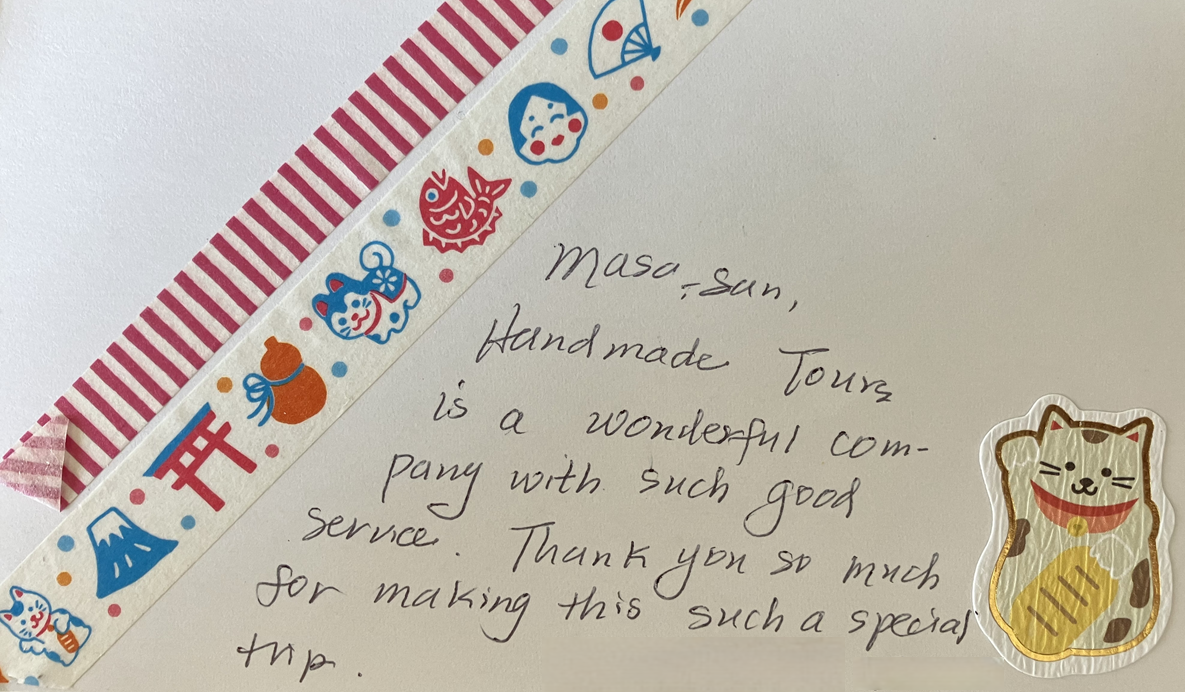 Masa-san,
Handmade Tours
is a wonderful com-
pany with such good
service. Thank you so much
for making this such a special
trip.